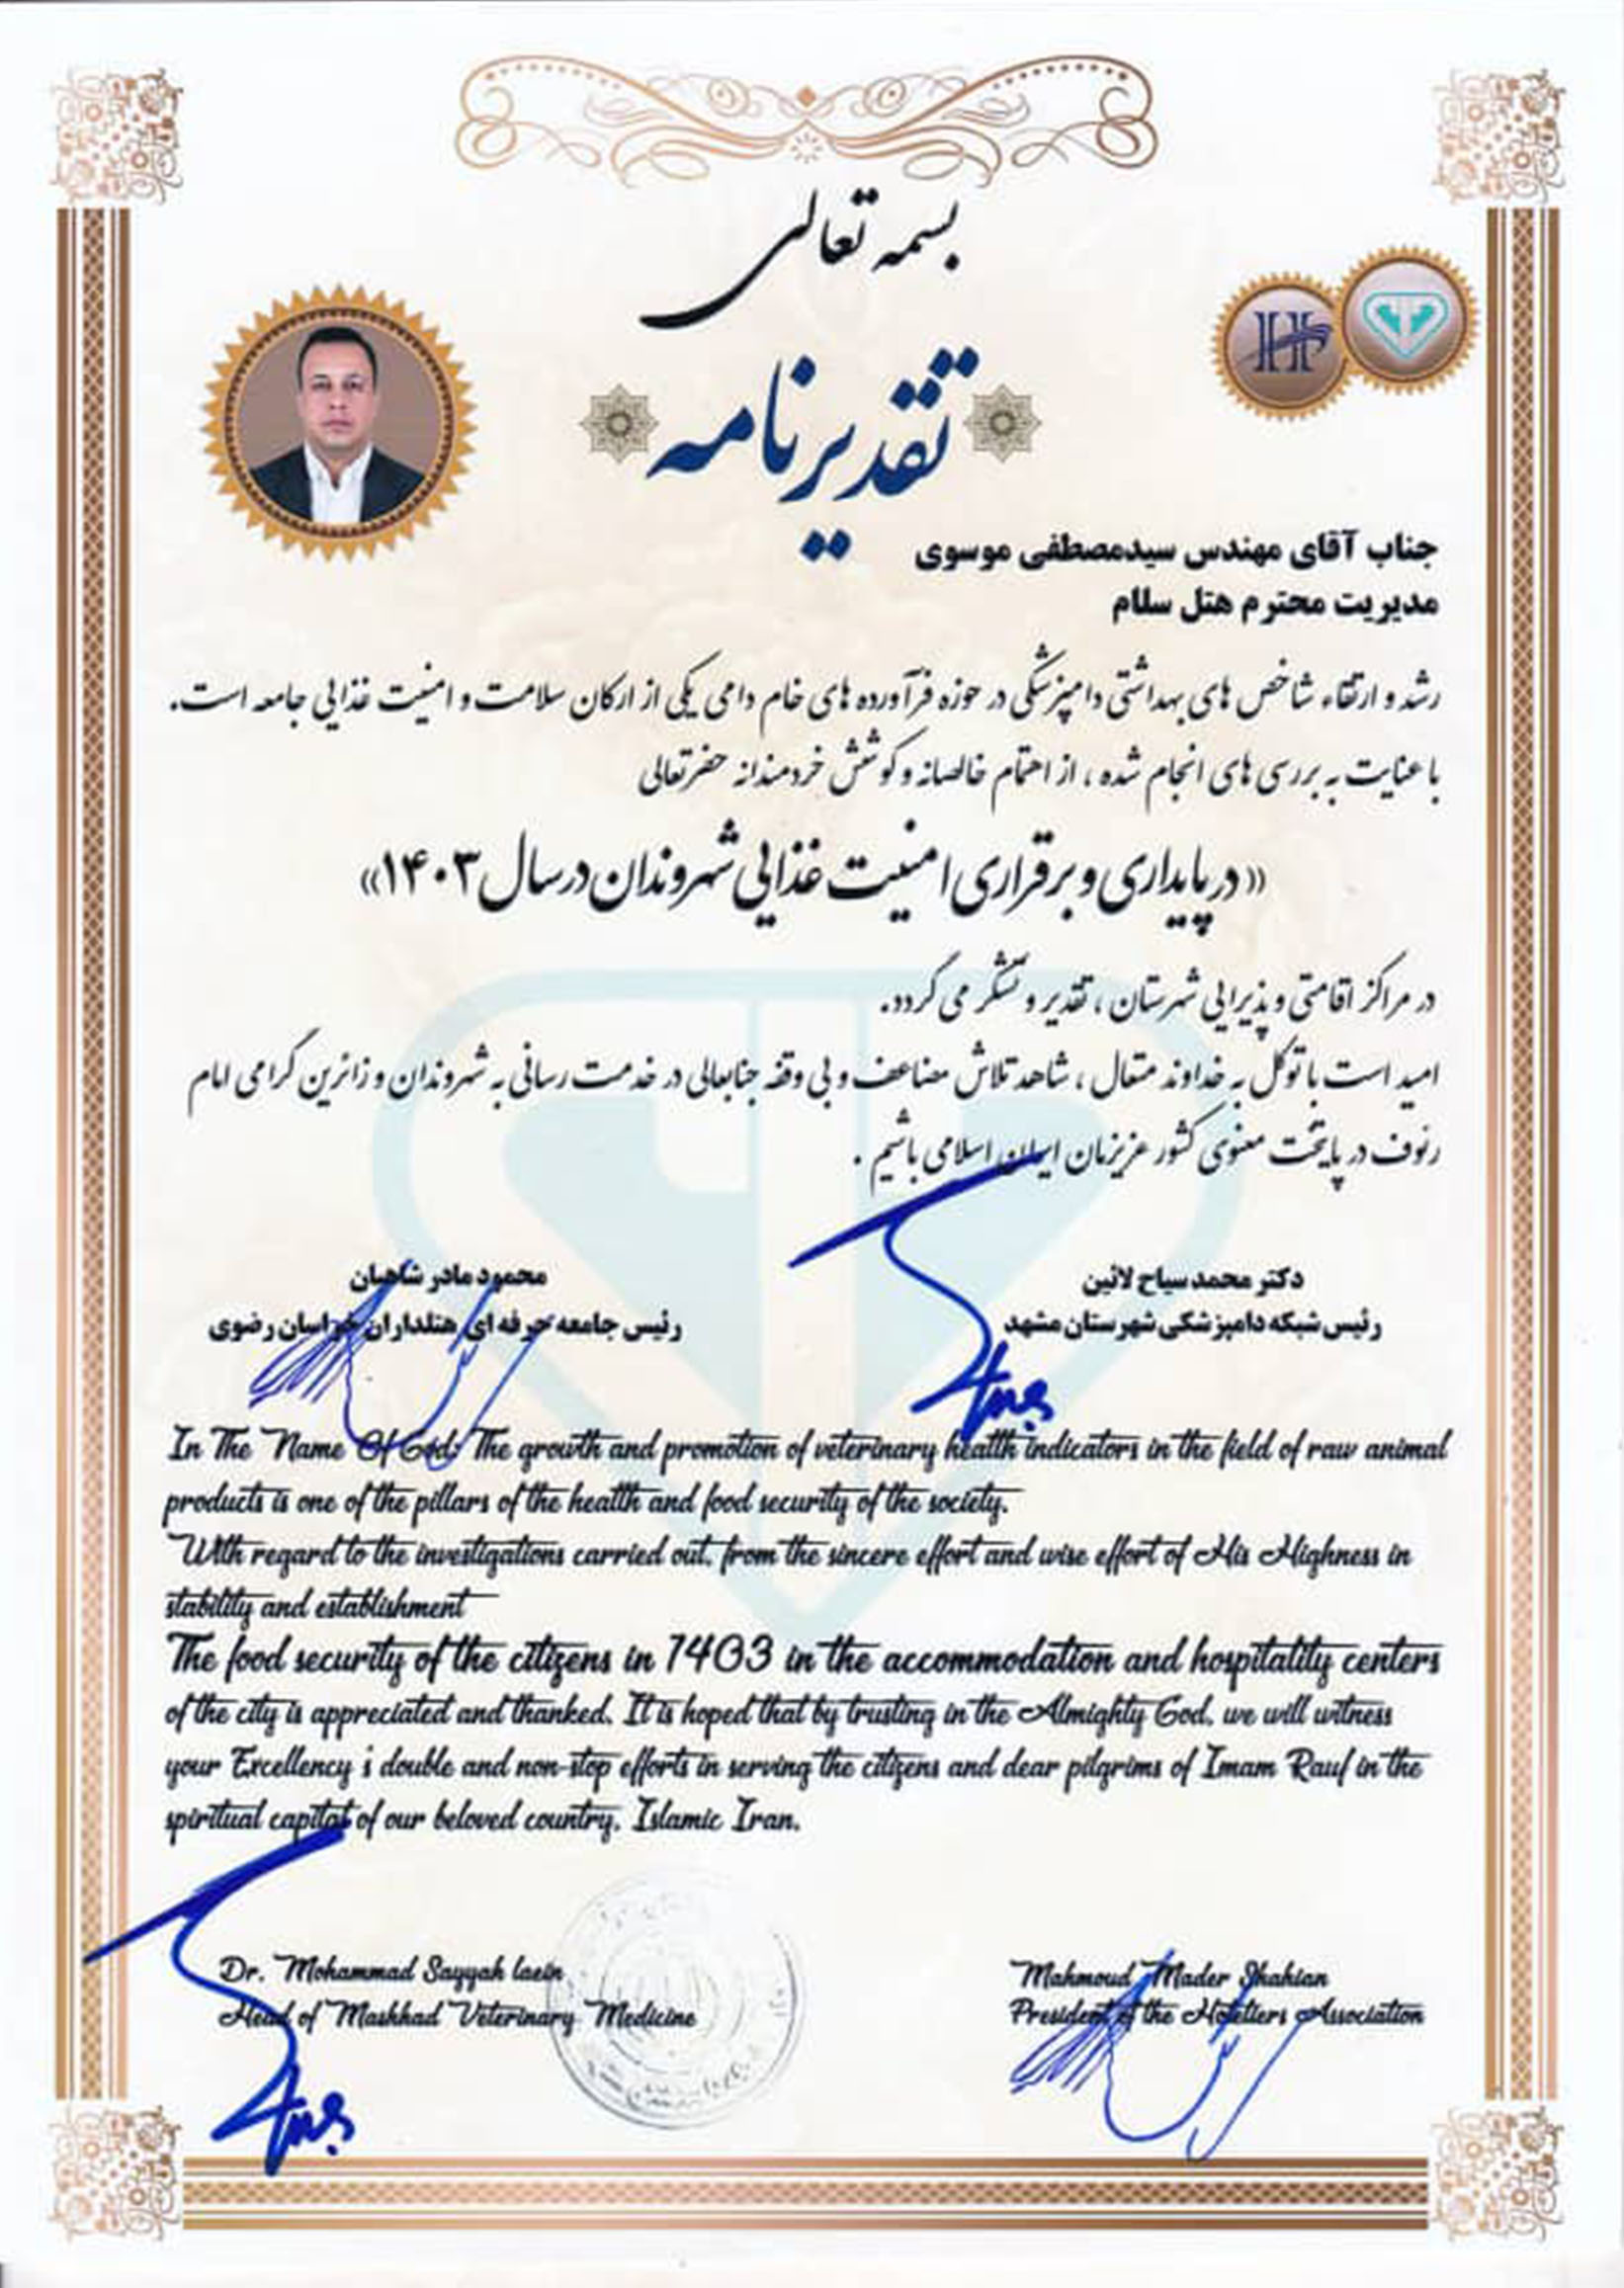 بسمه تعالی
تقدیرنامه
جناب آقای مهندس سیدمصطفی موسوی
مدیریت محترم هتل سلام
رشد و ارتقاء شاخص های بهداشتی دامپزشکی در حوزه فرآورده های خام دامی یکی از ارکان سلامت و امنیت غذایی جامعه است.
با عنایت به بررسی های انجام شده ، از اهتمام خالصانه و کوشش خردمندانه حضرتعالی
«در پایداری و برقراری امنیت غذایی شهروندان در سال ۱۴۰۳»
در مراکز اقامتی و پذیرایی شهرستان ، تقدیر و تشکر می گردد.
امید است با توکل به خداوند متعال ، شاهد تلاش مضاعف و بی وقفه جنابعالی در خدمت رسانی به شهروندان و زائرین گرامی امام
رئوف در پایتخت معنوی کشور عزیزمان ایران اسلامی باشیم .
دکتر محمد سیاح لائین
رئیس شبکه دامپزشکی شهرستان مشهد
محمود مادر شاهیان
رئیس جامعه حرفه ای هتلداران خراسان رضوی
In The Name Of God: The growth and promotion of veterinary health indicators in the field of raw animal
products is one of the pillars of the health and food security of the society.
With regard to the investigations carried out, from the sincere effort and wise effort of His Highness in
stability and establishment
The food security of the citizens in 1403 in the accommodation and hospitality centers
of the city is appreciated and thanked. It is hoped that by trusting in the Almighty God, we will witness
your Excellency's double and non-stop efforts in serving the citizens and dear pilgrims of Imam Rauf in the
spiritual capital of our beloved country, Islamic Iran.
Dr. Mohammad Sayyah laein
Head of Mashhad Veterinary Medicine
Mahmoud Mader Shahian
President of the Hoteliers Association